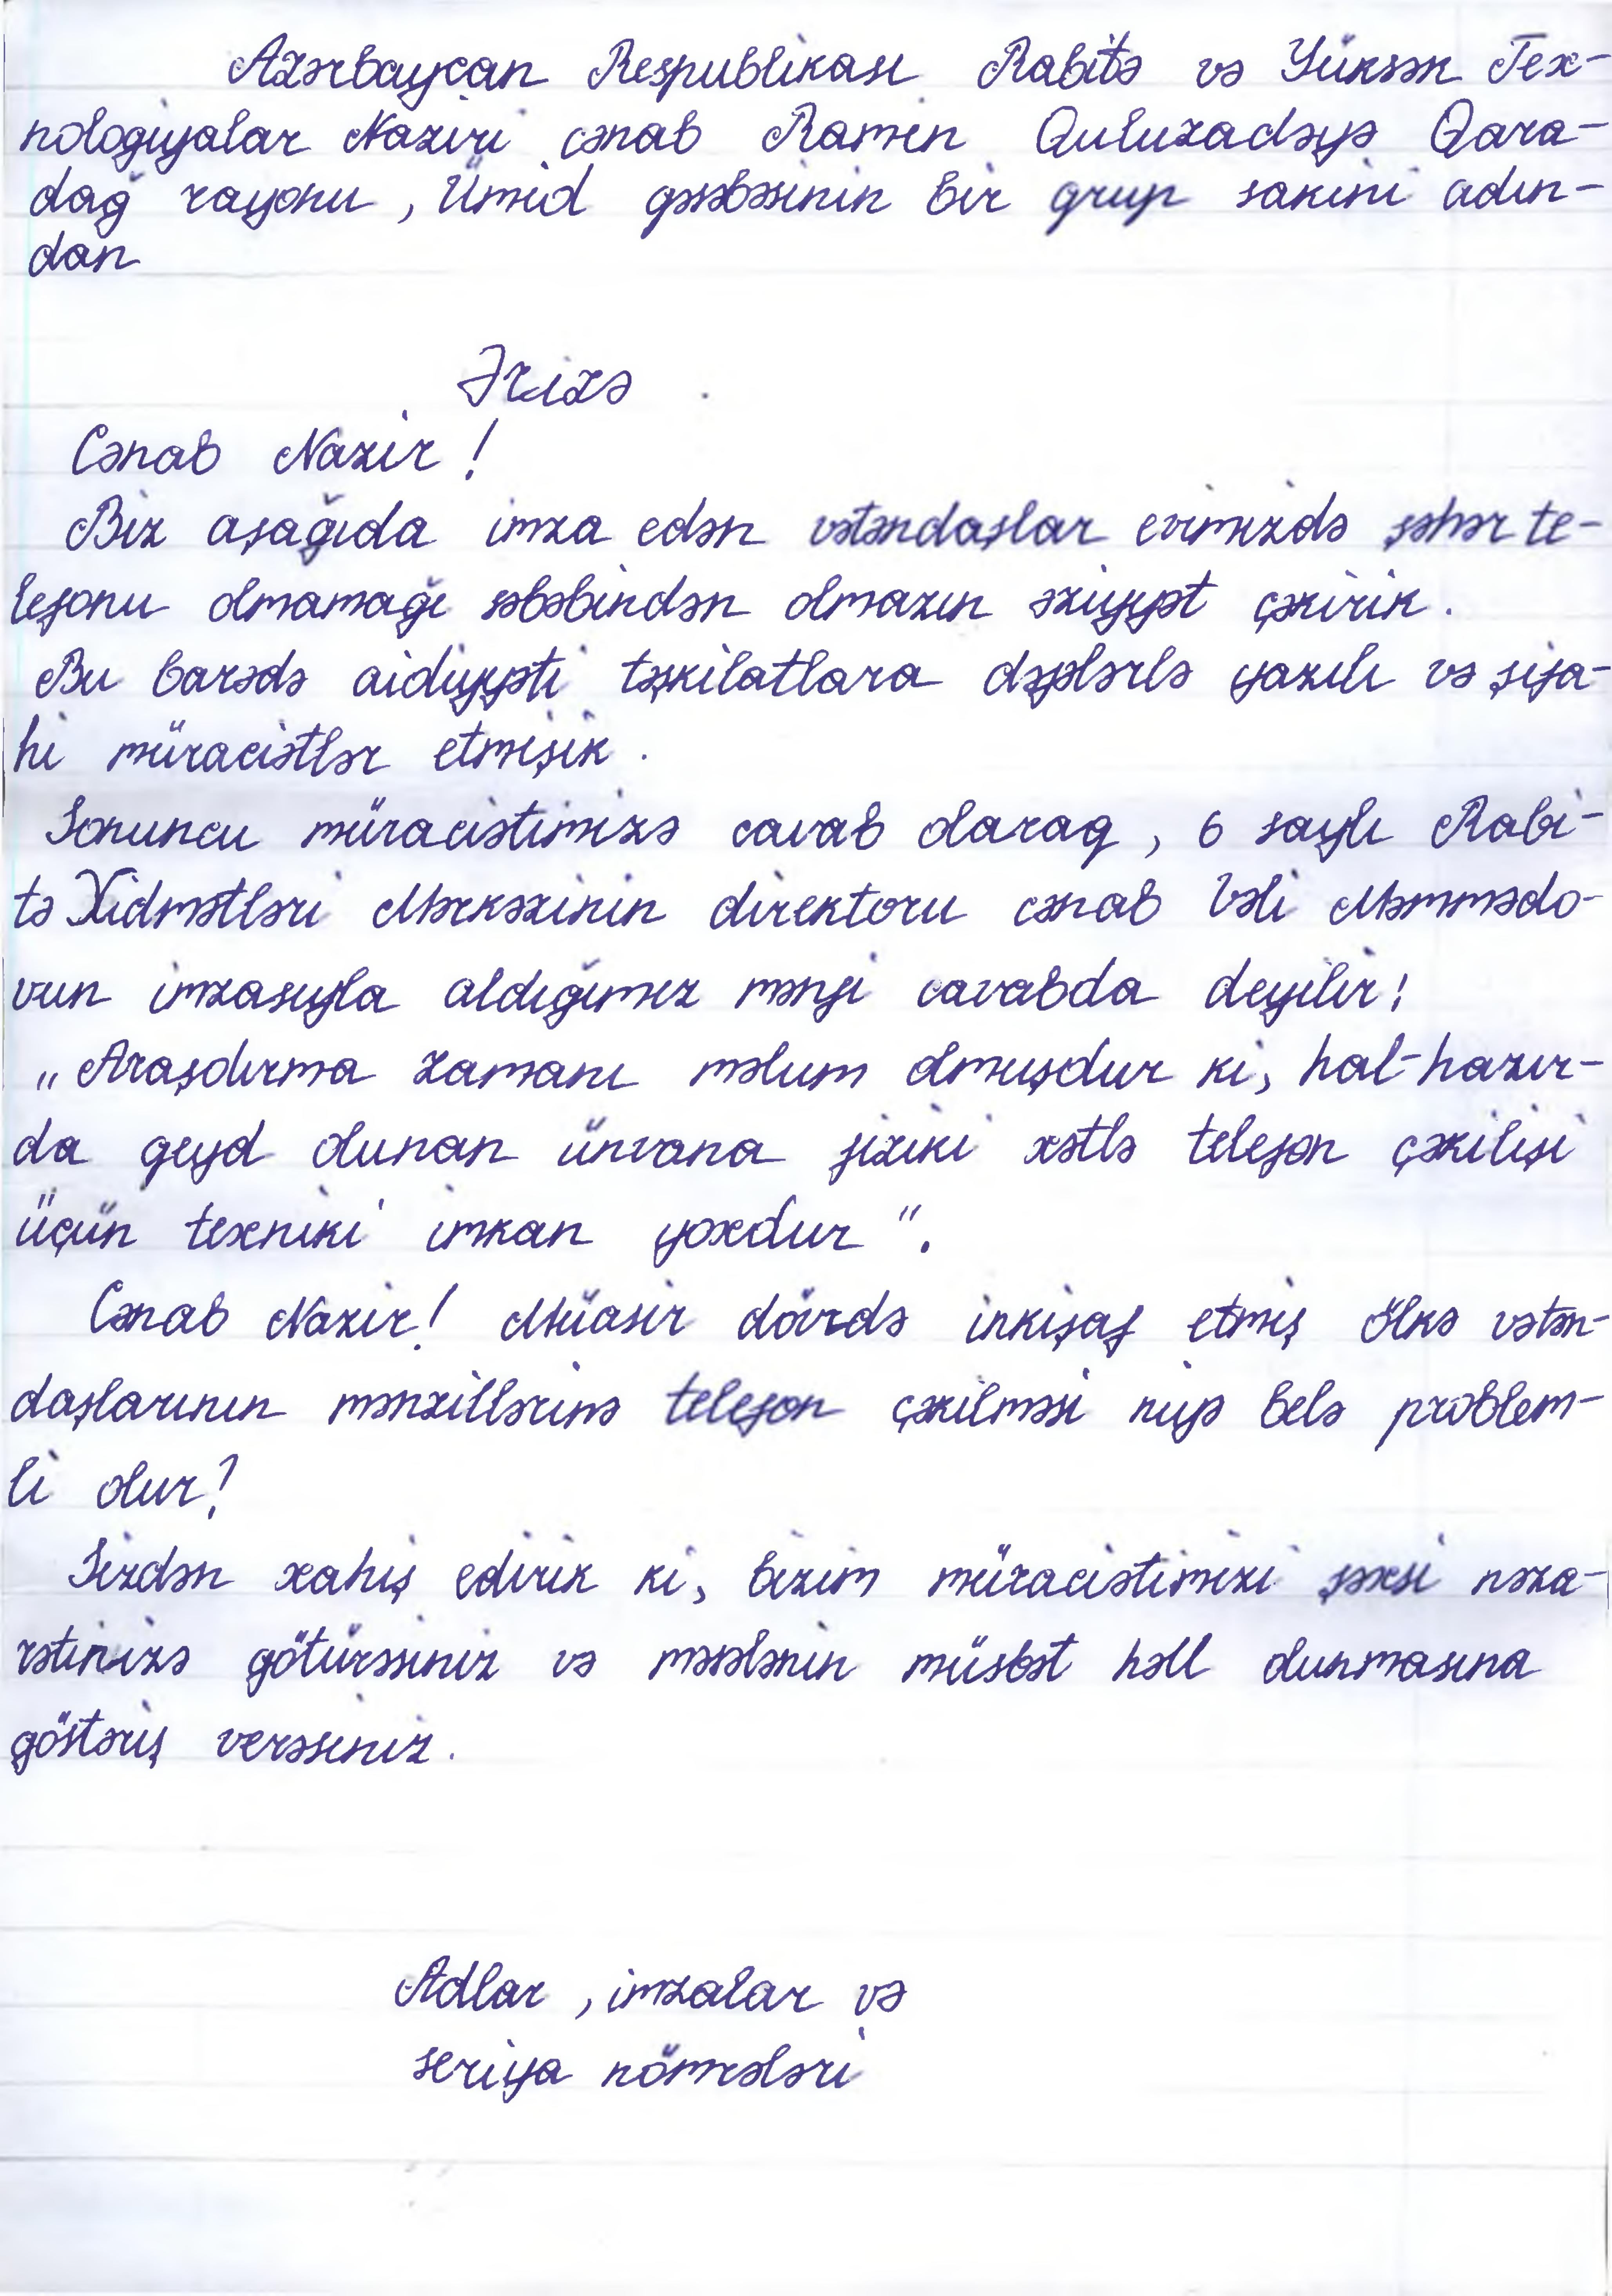 Azərbaycan Respublikası Rabitə və Yüksək Tex-
nologiyalar Naziri cənab Ramin Quluzadəyə Qara-
dağ rayonu, Ümid qəsəbəsinin bir qrup sakini adın-
dan
Ərizə
Cənab Nazir!
Biz aşağıda imza edən vətəndaşlar evimizdə şəhər te-
lefonu olmamağı səbəbindən olmazın əziyyət çəkirik.
Bu barədə aidiyyəti təşkilatlara dəfələrlə yazılı və şifa-
hi müraciətlər etmişik.
Sonuncu müraciətimizə cavab olaraq, 6 saylı Rabi-
tə Xidmətləri Mərkəzinin direktoru cənab Vəli Məmmədo-
vun imzasıyla aldığımız mənfi cavabda deyilir:
„Araşdırma zamanı məlum olmuşdur ki, hal-hazır-
da qeyd olunan ünvana fiziki xətlə telefon çəkilişi
üçün texniki imkan yoxdur".
Cənab Nazir! Müasir dövrdə inkişaf etmiş ölkə vətən-
daşlarının mənzillərinə telefon çəkilməsi niyə belə problem-
li olur?
Sizdən xahiş edirik ki, bizim müraciətimizi şəxsi nəza-
rətinizə götürəsiniz və məsələnin müsbət həll olunmasına
göstəriş verəsiniz.
Adlar, imzalar və
seriya nömrələri